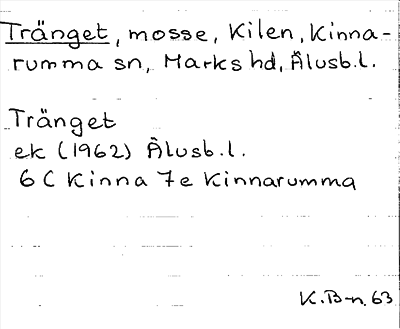 Tränget, mosse, Kilen, Kinna-
rumma sn, Marks hd, Älvsb.l.
Tränget
ek (1962) Älvsb.l.
6 C Kinna 7e Kinnarumma
K.B-n. 63